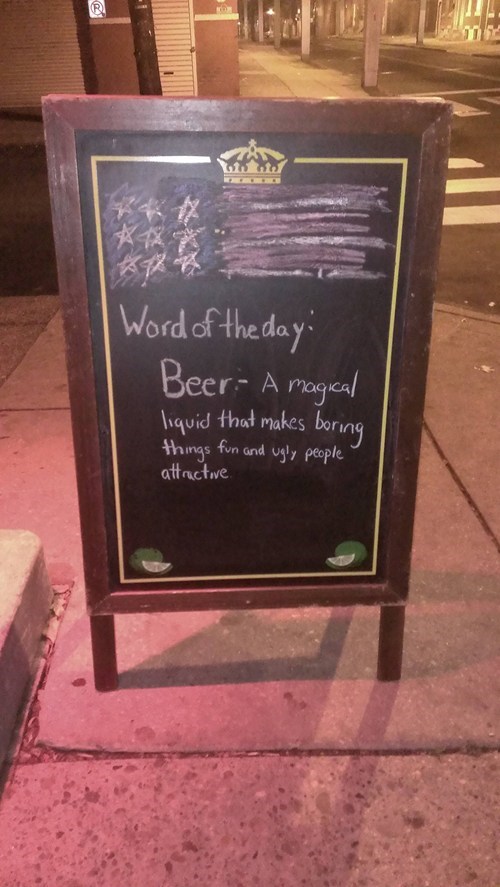 R
Word of the day:
Beer:- A magical
liquid that makes boring
things fun and ugly people
attractive.